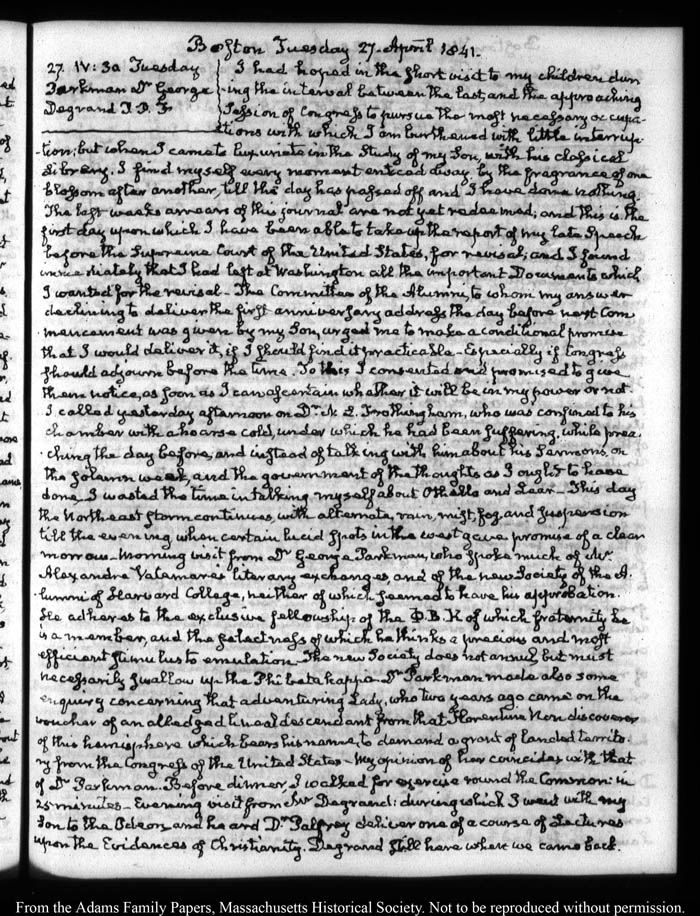 Boston Tuesday 27. April 1841.
27. IV:30 Tuesday
Parkman Dr George
Degrand P. P. F
I had hoped in the short visit to my children dur
ing the interval between the last, and the approaching
Session of Congress to pursue the most necessary occupa
tions with which I am burthened with little interrup
tion; but when I came to luxuriate in the Study of my Son, with his classical
Library, I find myself every moment enticed away by the fragrance of one
blossom after another, till the day has passed off and I have done nothing.
The last week's arrears of this journal are not yet redeemed; and this is the
first day upon which I have been able to take up the report of my late Speech
before the Supreme Court of the United States, for revisal; and I found
immediately that I had left at Washington all the important Documents which
I wanted for the revisal - The Committee of the Alumni, to whom my answer
declining to deliver the first anniversary address the day before next Com
mencement was given by my Son, urged me to make a conditional promise
that I would deliver it, if I should find it practicable - Especially if Congress
should adjourn before the time. To this I consented and promised to give
them notice, as soon as I can ascertain whether it will be in my power or not.
I called yesterday afternoon on Dr. N. L. Frothingham, who was confined to his
chamber with a hoarse cold, under which he had been suffering, while prea
ching the day before, and instead of talking with him about his Sermons, on
the solemn week, and the government of the thoughts as I ought to have
done I wasted the time in talking myself about Othello and Lear - This day
the Northeast storm continues, with alternate, rain, mist, fog, and suspension
till the evening when certain lucid spots in the west gave promise of a clear
morrow. Morning visit from Dr George Parkman, who spoke much of Mr
Alexandre Vatemare's literary exchanges, and of the new Society of the A
lumni of Harvard College, neither of which seemed to have his approbation.
He adheres to the exclusive fellowship of the Φ.B.K of which fraternity he
is a member, and the selectness of which he thinks a precious and most
efficient stimulus to emulation - The new Society does not annul but must
necessarily swallow up the Phi beta kappa. Dr Parkman made also some
enquiry concerning that adventuring Lady, who two years ago came on the
voucher of an alledged lineal descendant from that Florentine Non discoverer
of this hemisphere which bears his name, to demand a grant of landed territo
ry from the Congress of the United States - My opinion of her coincides with that
of Dr Parkman. Before dinner, I walked for exercise round the Common: in
25 minutes - Evening visit from Mr Degrand: during which I went with my
Son to the Odeon, and heard Dr. Palfrey deliver one of a course of Lectures
upon the Evidences of Christianity. Degrand still here when we came back.
From the Adams Family Papers, Massachusetts Historical Society. Not to be reproduced without permission.